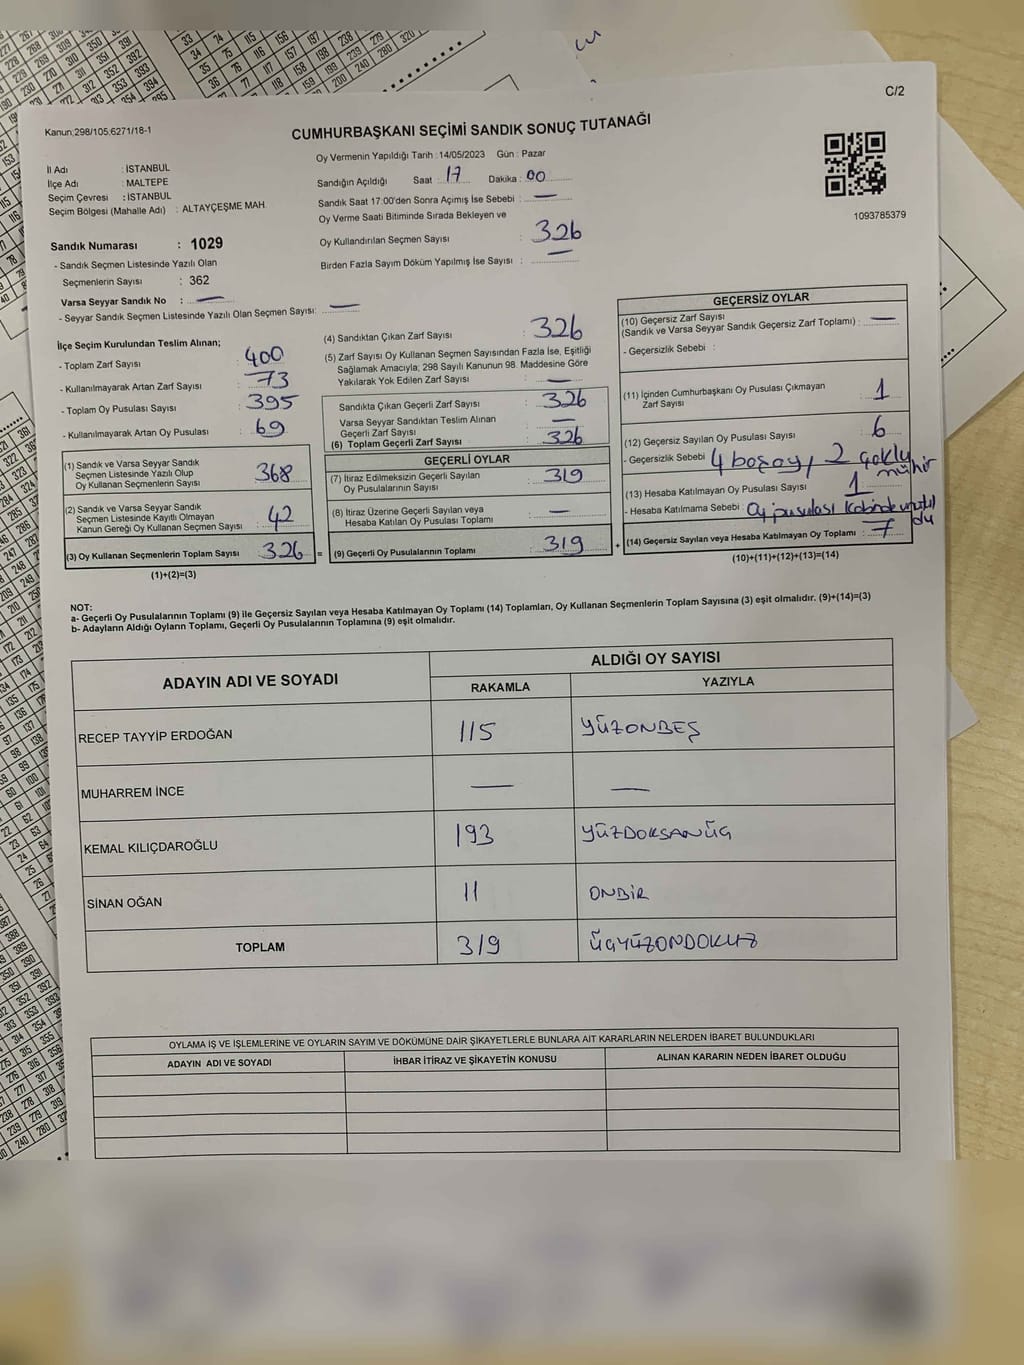 C/2
Kanun:298/105;6271/18-1
CUMHURBAŞKANI SEÇİMİ SANDIK SONUÇ TUTANAĞI
İl Adı : İSTANBUL
İlçe Adı : MALTEPE
Seçim Çevresi : İSTANBUL
Seçim Bölgesi (Mahalle Adı) : ALTAYÇEŞME MAH.
Oy Vermenin Yapıldığı Tarih :14/05/2023 Gün : Pazar
Sandığın Açıldığı Saat : 17 Dakika : 00
Sandık Saat 17:00'den Sonra Açımış İse Sebebi : —
Oy Verme Saati Bitiminde Sırada Bekleyen ve
Oy Kullandırılan Seçmen Sayısı : 326
Birden Fazla Sayım Döküm Yapılmış İse Sayısı : —
1093785379
Sandık Numarası : 1029
- Sandık Seçmen Listesinde Yazılı Olan
Seçmenlerin Sayısı : 362
Varsa Seyyar Sandık No : —
- Seyyar Sandık Seçmen Listesinde Yazılı Olan Seçmen Sayısı: —
İlçe Seçim Kurulundan Teslim Alınan;
- Toplam Zarf Sayısı : 400
- Kullanılmayarak Artan Zarf Sayısı : 73
- Toplam Oy Pusulası Sayısı : 395
- Kullanılmayarak Artan Oy Pusulası : 69
(1) Sandık ve Varsa Seyyar Sandık
Seçmen Listesinde Yazılı Olup
Oy Kullanan Seçmenlerin Sayısı : 368
(2) Sandık ve Varsa Seyyar Sandık
Seçmen Listesinde Kayıtlı Olmayan
Kanun Gereği Oy Kullanan Seçmen Sayısı : 42
(3) Oy Kullanan Seçmenlerin Toplam Sayısı : 326 =
(1)+(2)=(3)
(4) Sandıktan Çıkan Zarf Sayısı : 326
(5) Zarf Sayısı Oy Kullanan Seçmen Sayısından Fazla İse, Eşitliği
Sağlamak Amacıyla; 298 Sayılı Kanunun 98. Maddesine Göre
Yakılarak Yok Edilen Zarf Sayısı : —
Sandıkta Çıkan Geçerli Zarf Sayısı : 326
Varsa Seyyar Sandıktan Teslim Alınan
Geçerli Zarf Sayısı : —
(6) Toplam Geçerli Zarf Sayısı : 326
GEÇERLİ OYLAR
(7) İtiraz Edilmeksizin Geçerli Sayılan
Oy Pusulalarının Sayısı : 319
(8) İtiraz Üzerine Geçerli Sayılan veya
Hesaba Katılan Oy Pusulası Toplamı : —
(9) Geçerli Oy Pusulalarının Toplamı : 319 +
GEÇERSİZ OYLAR
(10) Geçersiz Zarf Sayısı
(Sandık ve Varsa Seyyar Sandık Geçersiz Zarf Toplamı) : —
- Geçersizlik Sebebi :
(11) İçinden Cumhurbaşkanı Oy Pusulası Çıkmayan
Zarf Sayısı : 1
(12) Geçersiz Sayılan Oy Pusulası Sayısı : 6
- Geçersizlik Sebebi : 4 boş oy, 2 çoklu
mühür
(13) Hesaba Katılmayan Oy Pusulası Sayısı : 1
- Hesaba Katılmama Sebebi : Oy pusulası kabinde unutul
du
(14) Geçersiz Sayılan veya Hesaba Katılmayan Oy Toplamı : 7
(10)+(11)+(12)+(13)=(14)
NOT:
a- Geçerli Oy Pusulalarının Toplamı (9) ile Geçersiz Sayılan veya Hesaba Katılmayan Oy Toplamı (14) Toplamları, Oy Kullanan Seçmenlerin Toplam Sayısına (3) eşit olmalıdır. (9)+(14)=(3)
b- Adayların Aldığı Oyların Toplamı, Geçerli Oy Pusulalarının Toplamına (9) eşit olmalıdır.
ADAYIN ADI VE SOYADI
ALDIĞI OY SAYISI
RAKAMLA YAZIYLA
RECEP TAYYİP ERDOĞAN 115 YÜZONBEŞ
MUHARREM İNCE — —
KEMAL KILIÇDAROĞLU 193 YÜZDOKSANÜÇ
SİNAN OĞAN 11 ONBİR
TOPLAM 319 ÜÇYÜZONDOKUZ
OYLAMA İŞ VE İŞLEMLERİNE VE OYLARIN SAYIM VE DÖKÜMÜNE DAİR ŞİKAYETLERLE BUNLARA AİT KARARLARIN NELERDEN İBARET BULUNDUKLARI
ADAYIN ADI VE SOYADI İHBAR İTİRAZ VE ŞİKAYETİN KONUSU ALINAN KARARIN NEDEN İBARET OLDUĞU